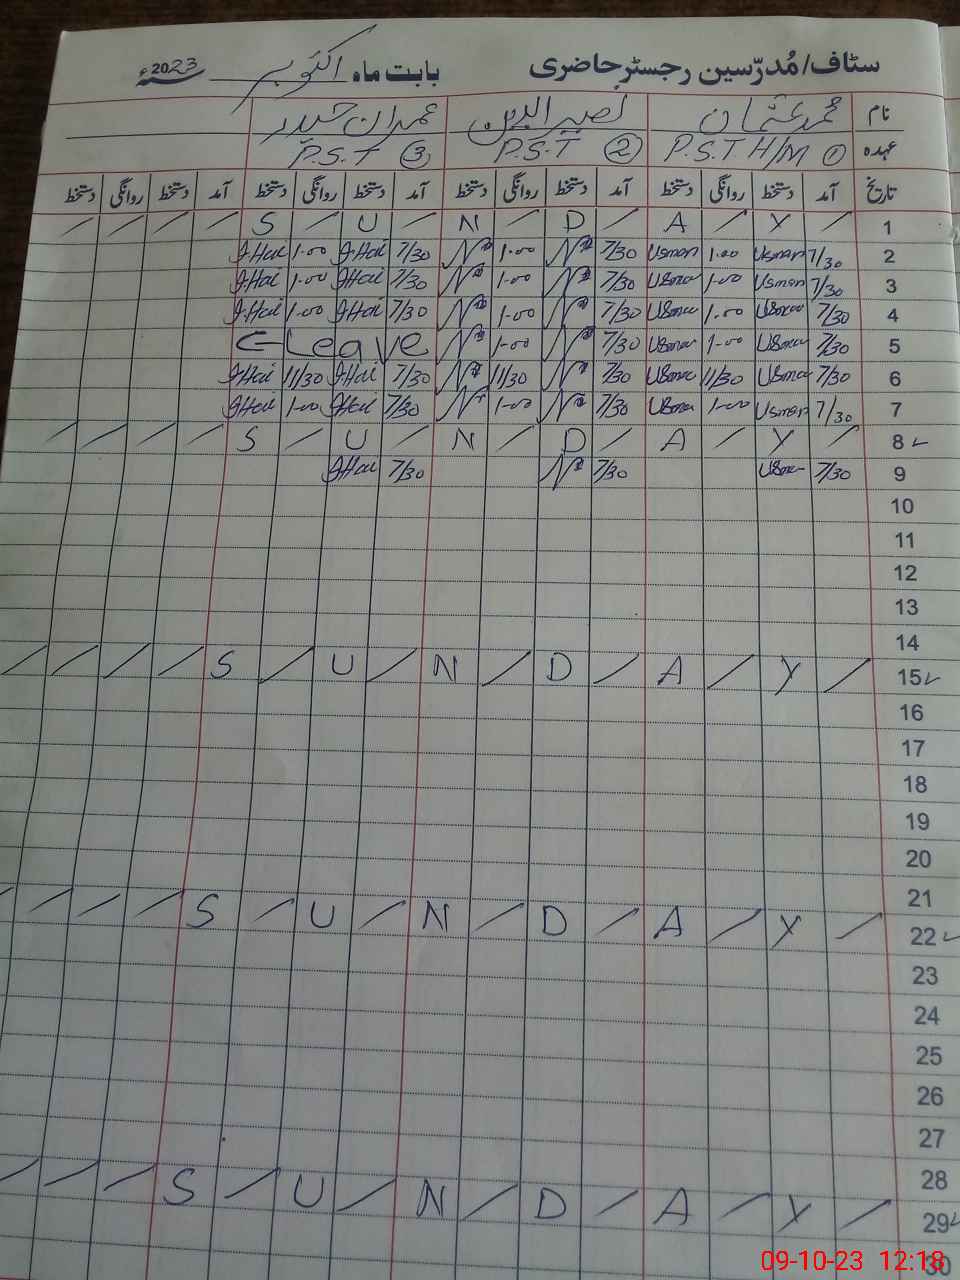 سٹاف/مُدرّسین رجسٹر حاضری بابت ماہ اکتوبر 2023ء
نام محمد عثمان نصیر الدین عمران حیدر
عہدہ P.S.T H/M ① P.S.T ② P.S.T ③
تاریخ آمد دستخط روانگی دستخط آمد دستخط روانگی دستخط آمد دستخط روانگی دستخط آمد دستخط روانگی دستخط
/ / / / S / U / N / D / A / Y / 1
J.Hai 1-00 J.Hai 7/30 N 1-00 N 7/30 Usman 1-00 Usman 7/30 2
J.Hai 1-00 J.Hai 7/30 N 1-00 N 7/30 Usman 1-00 Usman 7/30 3
J.Hai 1-00 J.Hai 7/30 N 1-00 N 7/30 Usman 1-00 Usman 7/30 4
Leave N 1-00 N 7/30 Usman 1-00 Usman 7/30 5
J.Hai 11/30 J.Hai 7/30 N 11/30 N 7/30 Usman 11/30 Usman 7/30 6
J.Hai 1-00 J.Hai 7/30 N 1-00 N 7/30 Usman 1-00 Usman 7/30 7
/ / / / S / U / N / D / A / Y / 8✓
J.Hai 7/30 N 7/30 Usman 7/30 9
10
11
12
13
14
/ / / / S / U / N / D / A / Y / 15✓
16
17
18
19
20
21
/ / / / S / U / N / D / A / Y / 22✓
23
24
25
26
27
28
/ / / S / U / N / D / A / Y / 29✓
30
09-10-23 12:18